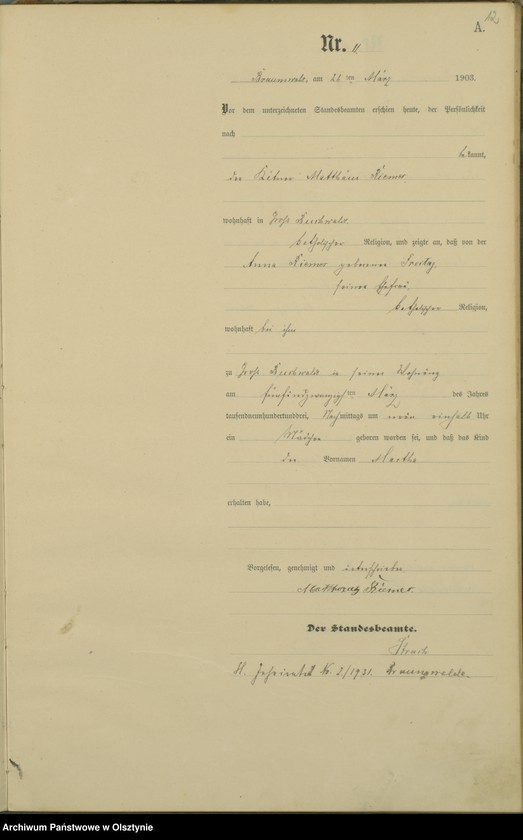 A. 12
Nr. 11
Braunswalde, am 26 ten März 1903.
Vor dem unterzeichneten Standesbeamten erschien heute, der Persönlichkeit
nach
be kannt,
der Kätner Matthäus Riemer
wohnhaft in Groß Buchwalde
katholischer Religion, und zeigte an, daß von der
Anna Riemer geborenen
seiner Ehefrau,
katholischer Religion,
wohnhaft bei ihm
zu Groß Buchwalde in seiner Wohnung
am fünfundzwanzigsten März des Jahres
tausendneunhundertunddrei, Nachmittags um neun einhalb Uhr
ein Mädchen geboren worden sei, und daß das Kind
den Vornamen Martha
erhalten habe,
Vorgelesen, genehmigt und unterschrieben
Riemer.
Der Standesbeamte.
H. Nr. 2/1921. Braunswalde.
Archiwum Państwowe w Olsztynie